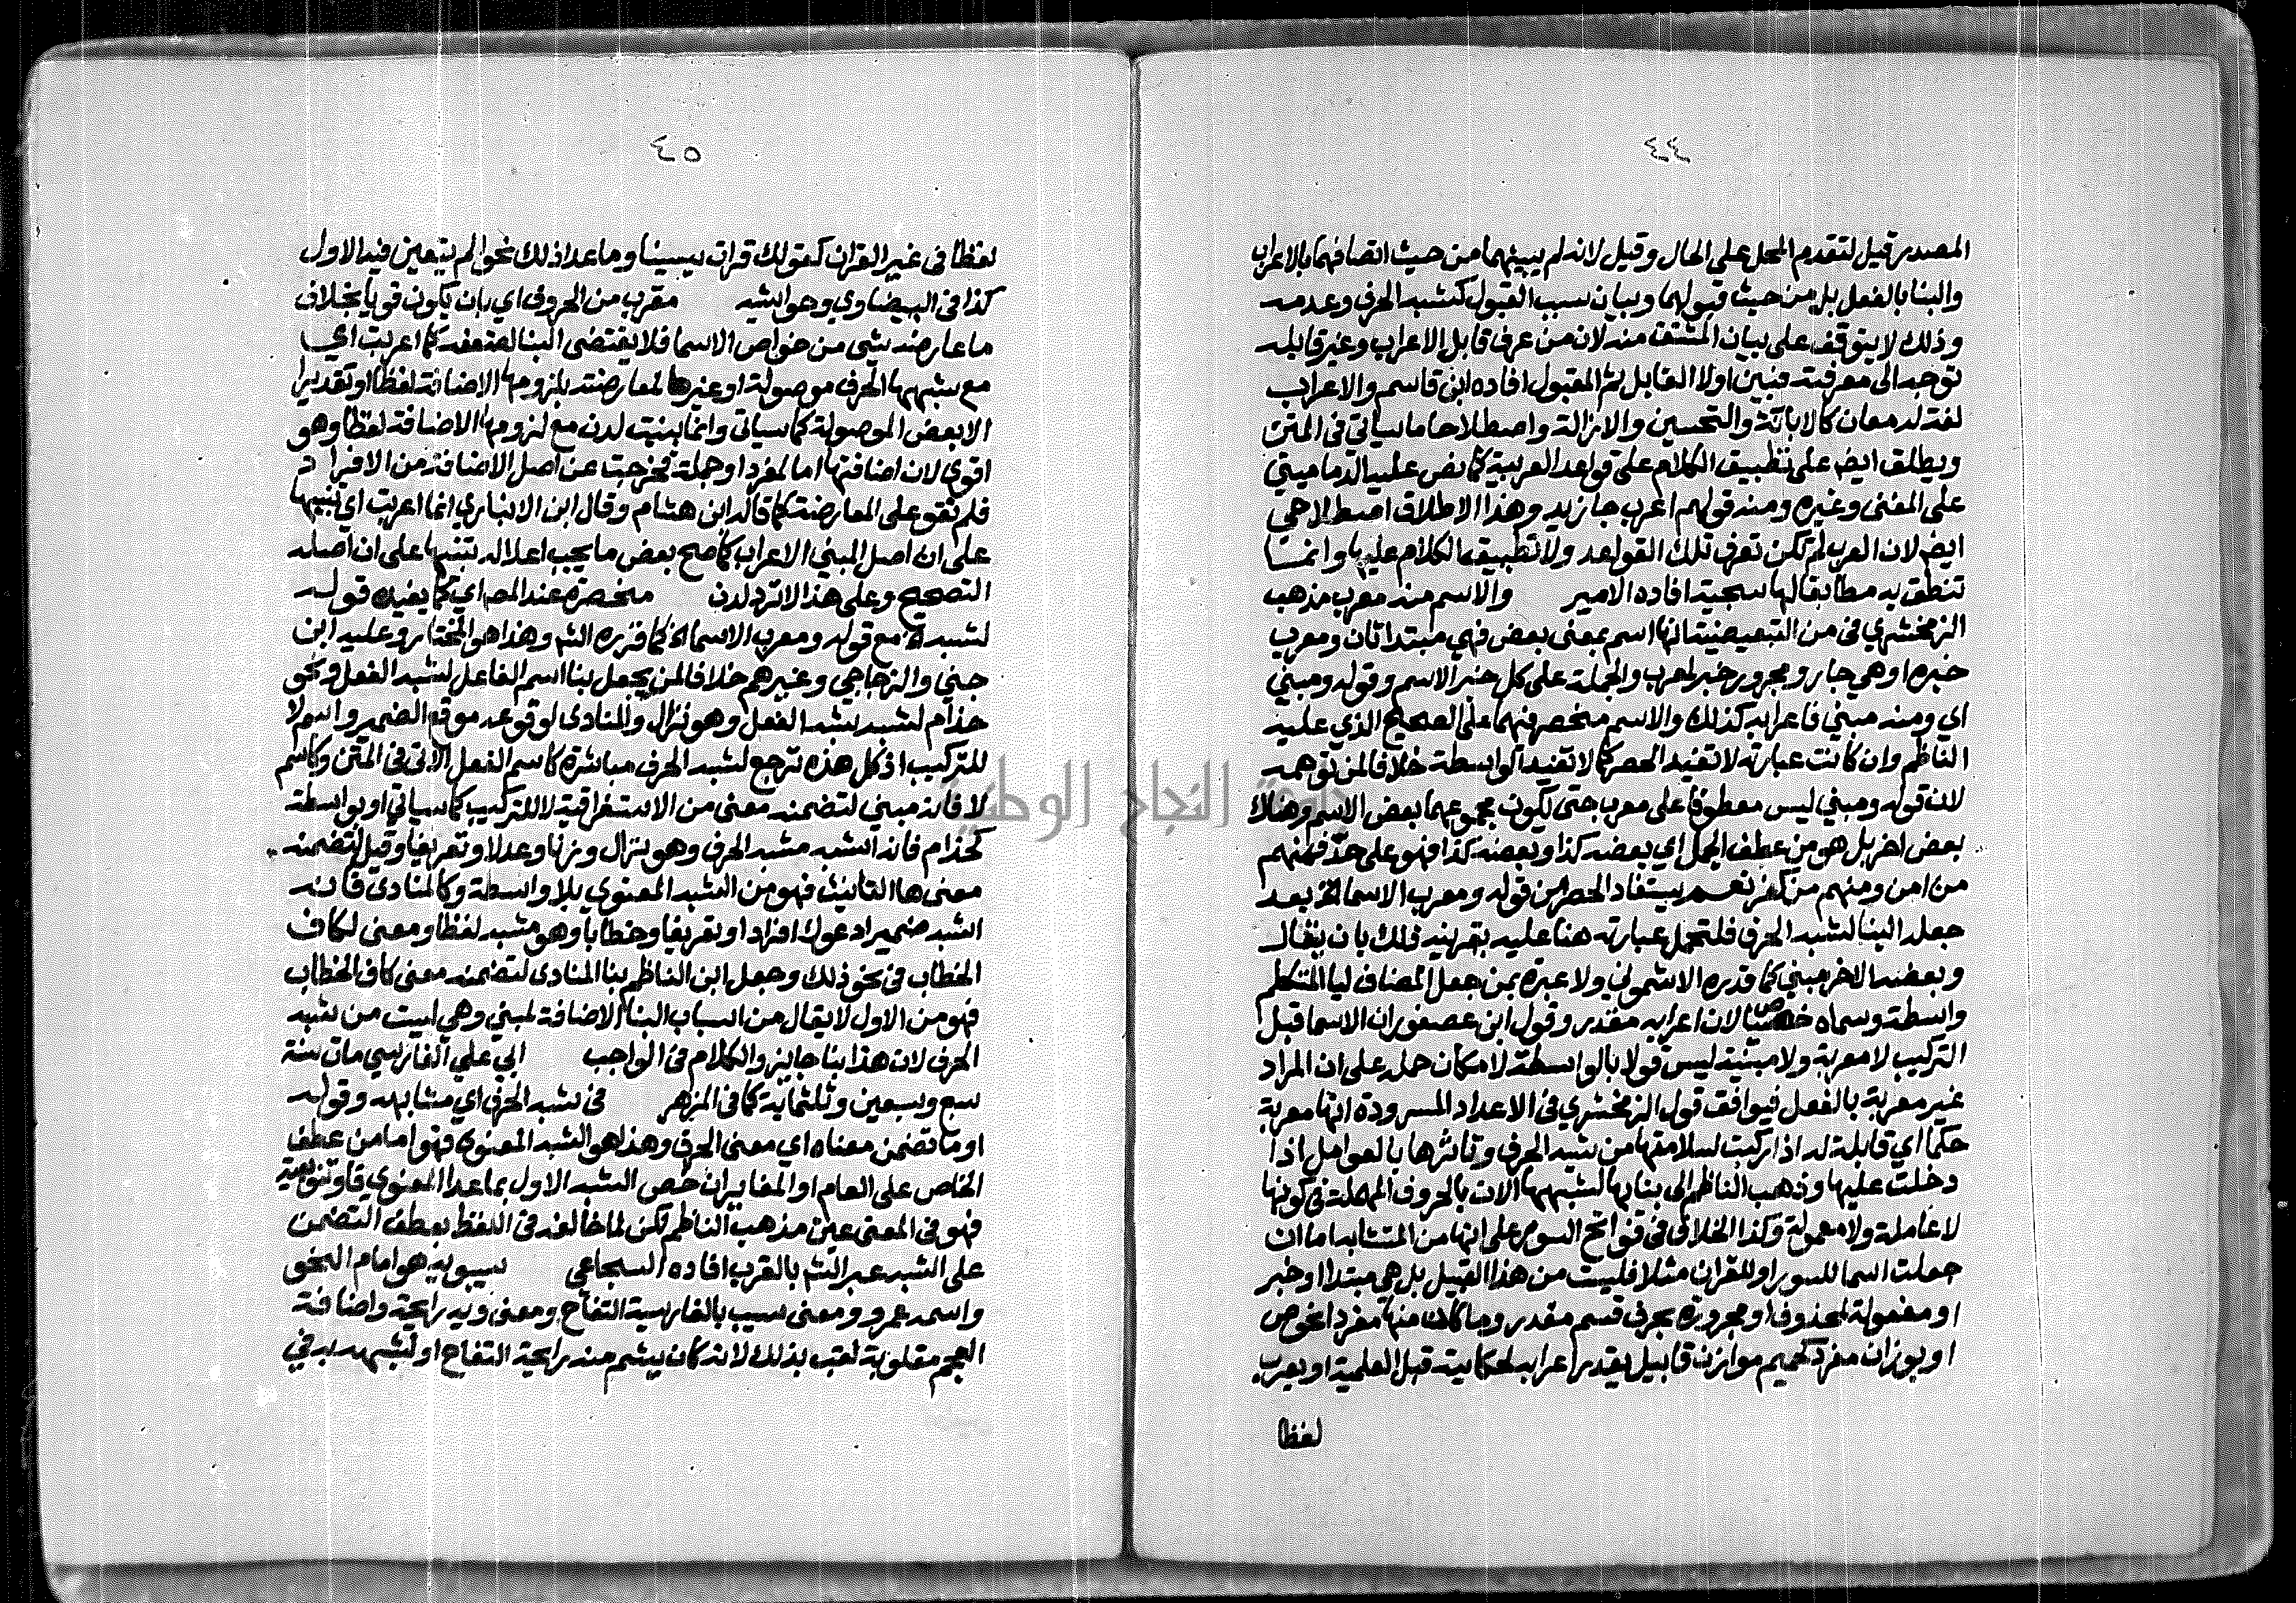 ٤٤
المصدر قيل لتقدم المحل على الحال وقيل لانه لم يبينهما من حيث اتصافهما بالاعراب
والبنا بالفعل بل من حيث قبولهما وبيان سبب القبول كشبه الحرف وعدمه
وذلك لا يتوقف على بيان المشتق منه لان من عرف قابل الاعراب وغير قابله
توجه الى معرفته فبين اولا القابل ثم المقبول افاده ابن قاسم والاعراب
لغة له معان كالابانة والتحسين والازالة واصطلاحا ما سياتي في المتن
ويطلق ايض على تطبيق الكلام على قواعد العربية كما نص عليه الدماميني
على المغنى وغيره ومنه قولهم اعرب جا زيد وهذا الاطلاق اصطلاحي
ايض لان العرب لم تكن تعرف تلك القواعد ولا تطبيق الكلام عليها وانما
تنطق به مطابقا لها سجية افاده الامير والاسم منه معرب مذهب
الزمخشري في من التبعيضية انها اسم بمعنى بعض فهي مبتدا ثان ومعرب
خبره او هي جار ومجرور خبر لمعرب والجملة على كل خبر الاسم وقوله ومبني
اي ومنه مبني فاعرابه كذلك والاسم منحصر فيهما على الصحيح الذي عليه
الناظم وان كانت عبارته لا تفيد الحصر كما لا تفيد الواسطة خلافا لمن توهمه
لان قوله ومبني ليس معطوفا على معرب حتى يكون مجموعهما بعض الاسم وهناك
بعض اخر بل هو من عطف الجمل اي بعضه كذا وبعضه كذا فهو على حد فمنهم
من امن ومنهم من كفر نعم يستفاد الحصر من قوله ومعرب الاسما الخ بعد
جعله البنا لشبه الحرف فلتحمل عبارته هنا عليه بقرينة ذلك بان يقال
وبعضه الاخر مبني كما قدره الاشموني ولا عبرة بمن جعل المضاف ليا المتكلم
واسطة وسماه خصيا لان اعرابه مقدر وقول ابن عصفور ان الاسما قبل
التركيب لا معربة ولا مبنية ليس قولا بالواسطة لامكان حمله على ان المراد
غير معربة بالفعل فيوافق قول الزمخشري في الاعداد المسرودة انها معربة
حكما اي قابلة له اذا ركبت لسلامتها من شبه الحرف وتاثرها بالعوامل اذا
دخلت عليها وذهب الناظم الى بنايها لشبهها الان بالحروف المهملة في كونها
لا عاملة ولا معمولة وكذا الخلاف في فواتح السور على انها من المتشابه اما ان
جعلت اسما للسور او للقران مثلا فليست من هذا القبيل بل هي مبتدا او خبر
او مفعولة لمحذوف او مجرورة بحرف قسم مقدر وما كان منها مفردا نحو ص
او بوزان مفرد كحميم موازن قابيل يقدر اعرابه لحكايته قبل العلمية او يعرب
لفظا
٤٥
لفظا في غير القران كقولك قرات يسينا وما عدا ذلك نحو الم يتعين فيه الاول
كذا في البيضاوي وحواشيه مقرب من الحروف اي بان يكون قويا بخلاف
ما عارضه شي من خواص الاسما فلا يقتضى البنا لضعفه كما اعربت اي
مع شبهها الحرف موصولة او غيرها لمعارضته بلزومها الاضافة لفظا او تقديرا
الا بعض الموصولة كما سياتى وانما بنيت لدن مع لزومها الاضافة لفظا وهو
اقوى لان اضافتها اما لمفرد او جملة فخرجت عن اصل الاضافة من الافراد
فلم تقو على المعارضة كما قاله ابن هشام وقال ابن الانباري انما اعربت اي تنبيها
على ان اصل المبني الاعراب كما صح بعض ما يجب اعلاله تنبيها على ان اصله
التصحيح وعلى هذا لا ترد لدن منحصرة عند المص اي كما يفيده قوله
لشبه الخ مع قوله ومعرب الاسما الخ كما قرره الشم وهذا هو المختار وعليه ابن
جني والزجاجي وغيرهم خلافا لمن يجعل بنا اسم الفاعل لشبه الفعل ونحو
حذام لشبه شبه الفعل وهو نزال والمنادى لوقوعه موقع الضمير واسم لا
للتركيب اذ كل هذه ترجع لشبه الحرف مباشرة كاسم الفعل الاتى في المتن وكاسم
لا فانه مبني لتضمنه معنى من الاستغراقية لا للتركيب كما سياتي او بواسطة
كحذام فانه اشبه مشبه الحرف وهو نزال وزنا وعدلا وتعريفا وقيل لتضمنه
معنى ها التانيث فهو من الشبه المعنوي بلا واسطة وكالمنادى فانه
اشبه ضمير ادعوك افرادا وتعريفا وخطابا وهو مشبه لفظا ومعنى لكاف
الخطاب في نحو ذلك وجعل ابن الناظم بنا المنادى لتضمنه معنى كاف الخطاب
فهو من الاول لا يقال من اسباب البنا الاضافة لمبني وهي ليست من شبه
الحرف لان هذا بنا جايز والكلام في الواجب ابي علي الفارسي مات سنة
سبع وسبعين وثلثماية كما في المزهر في شبه الحرف اي مشابهه وقوله
او ما تضمن معناه اي معنى الحرف وهذا هو الشبه المعنوي فهو اما من عطف
الخاص على العام او المغاير ان خص الشبه الاول بما عدا المعنوي فاو تنويعية
فهو في المعنى عين مذهب الناظم لكن لما خالفه في اللفظ بعطف التضمن
على الشبه عبر الشم بالقرب افاده السجاعي سيبويه هو امام النحو
واسمه عمرو ومعنى سيب بالفارسية التفاح ومعنى ويه رايحة واضافة
العجم مقلوبة لقب بذلك لانه كان يشم منه رايحة التفاح او لشبهه به في
جامعة النجاح الوطنية